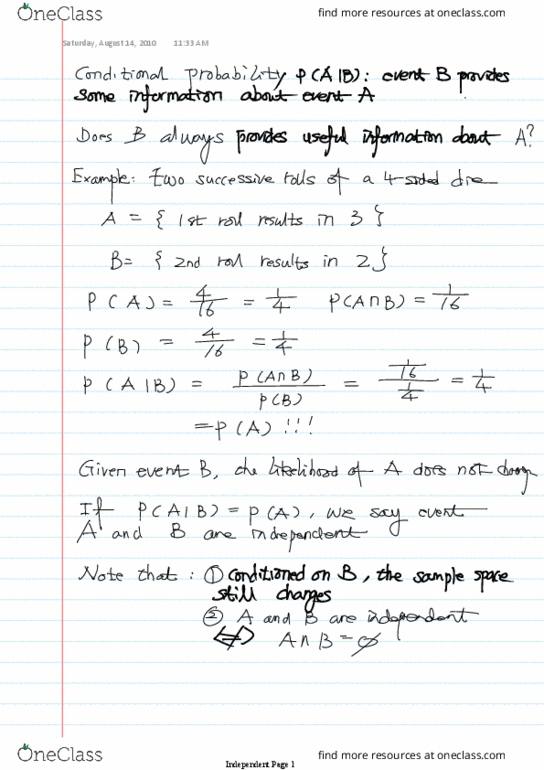 OneClass find more resources at oneclass.com
Saturday, August 14, 2010 11:33 AM
Conditional probability P(A|B): event B provides
some information about event A
Does B always provides useful information about A?
Example: two successive rolls of a 4-sided die
A = { 1st roll results in 3 }
B = { 2nd roll results in 2 }
P(A) = 4/16 = 1/4 P(A∩B) = 1/16
P(B) = 4/16 = 1/4
P(A|B) = P(A∩B)/P(B) = (1/16)/(1/4) = 1/4
= P(A) !!!
Given event B, the likelihood of A does not change
If P(A|B) = P(A), we say event
A and B are independent
Note that: ① Conditioned on B, the sample space
still changes
② A and B are independent
⇎ A∩B = ∅
OneClass find more resources at oneclass.com
Independent Page 1